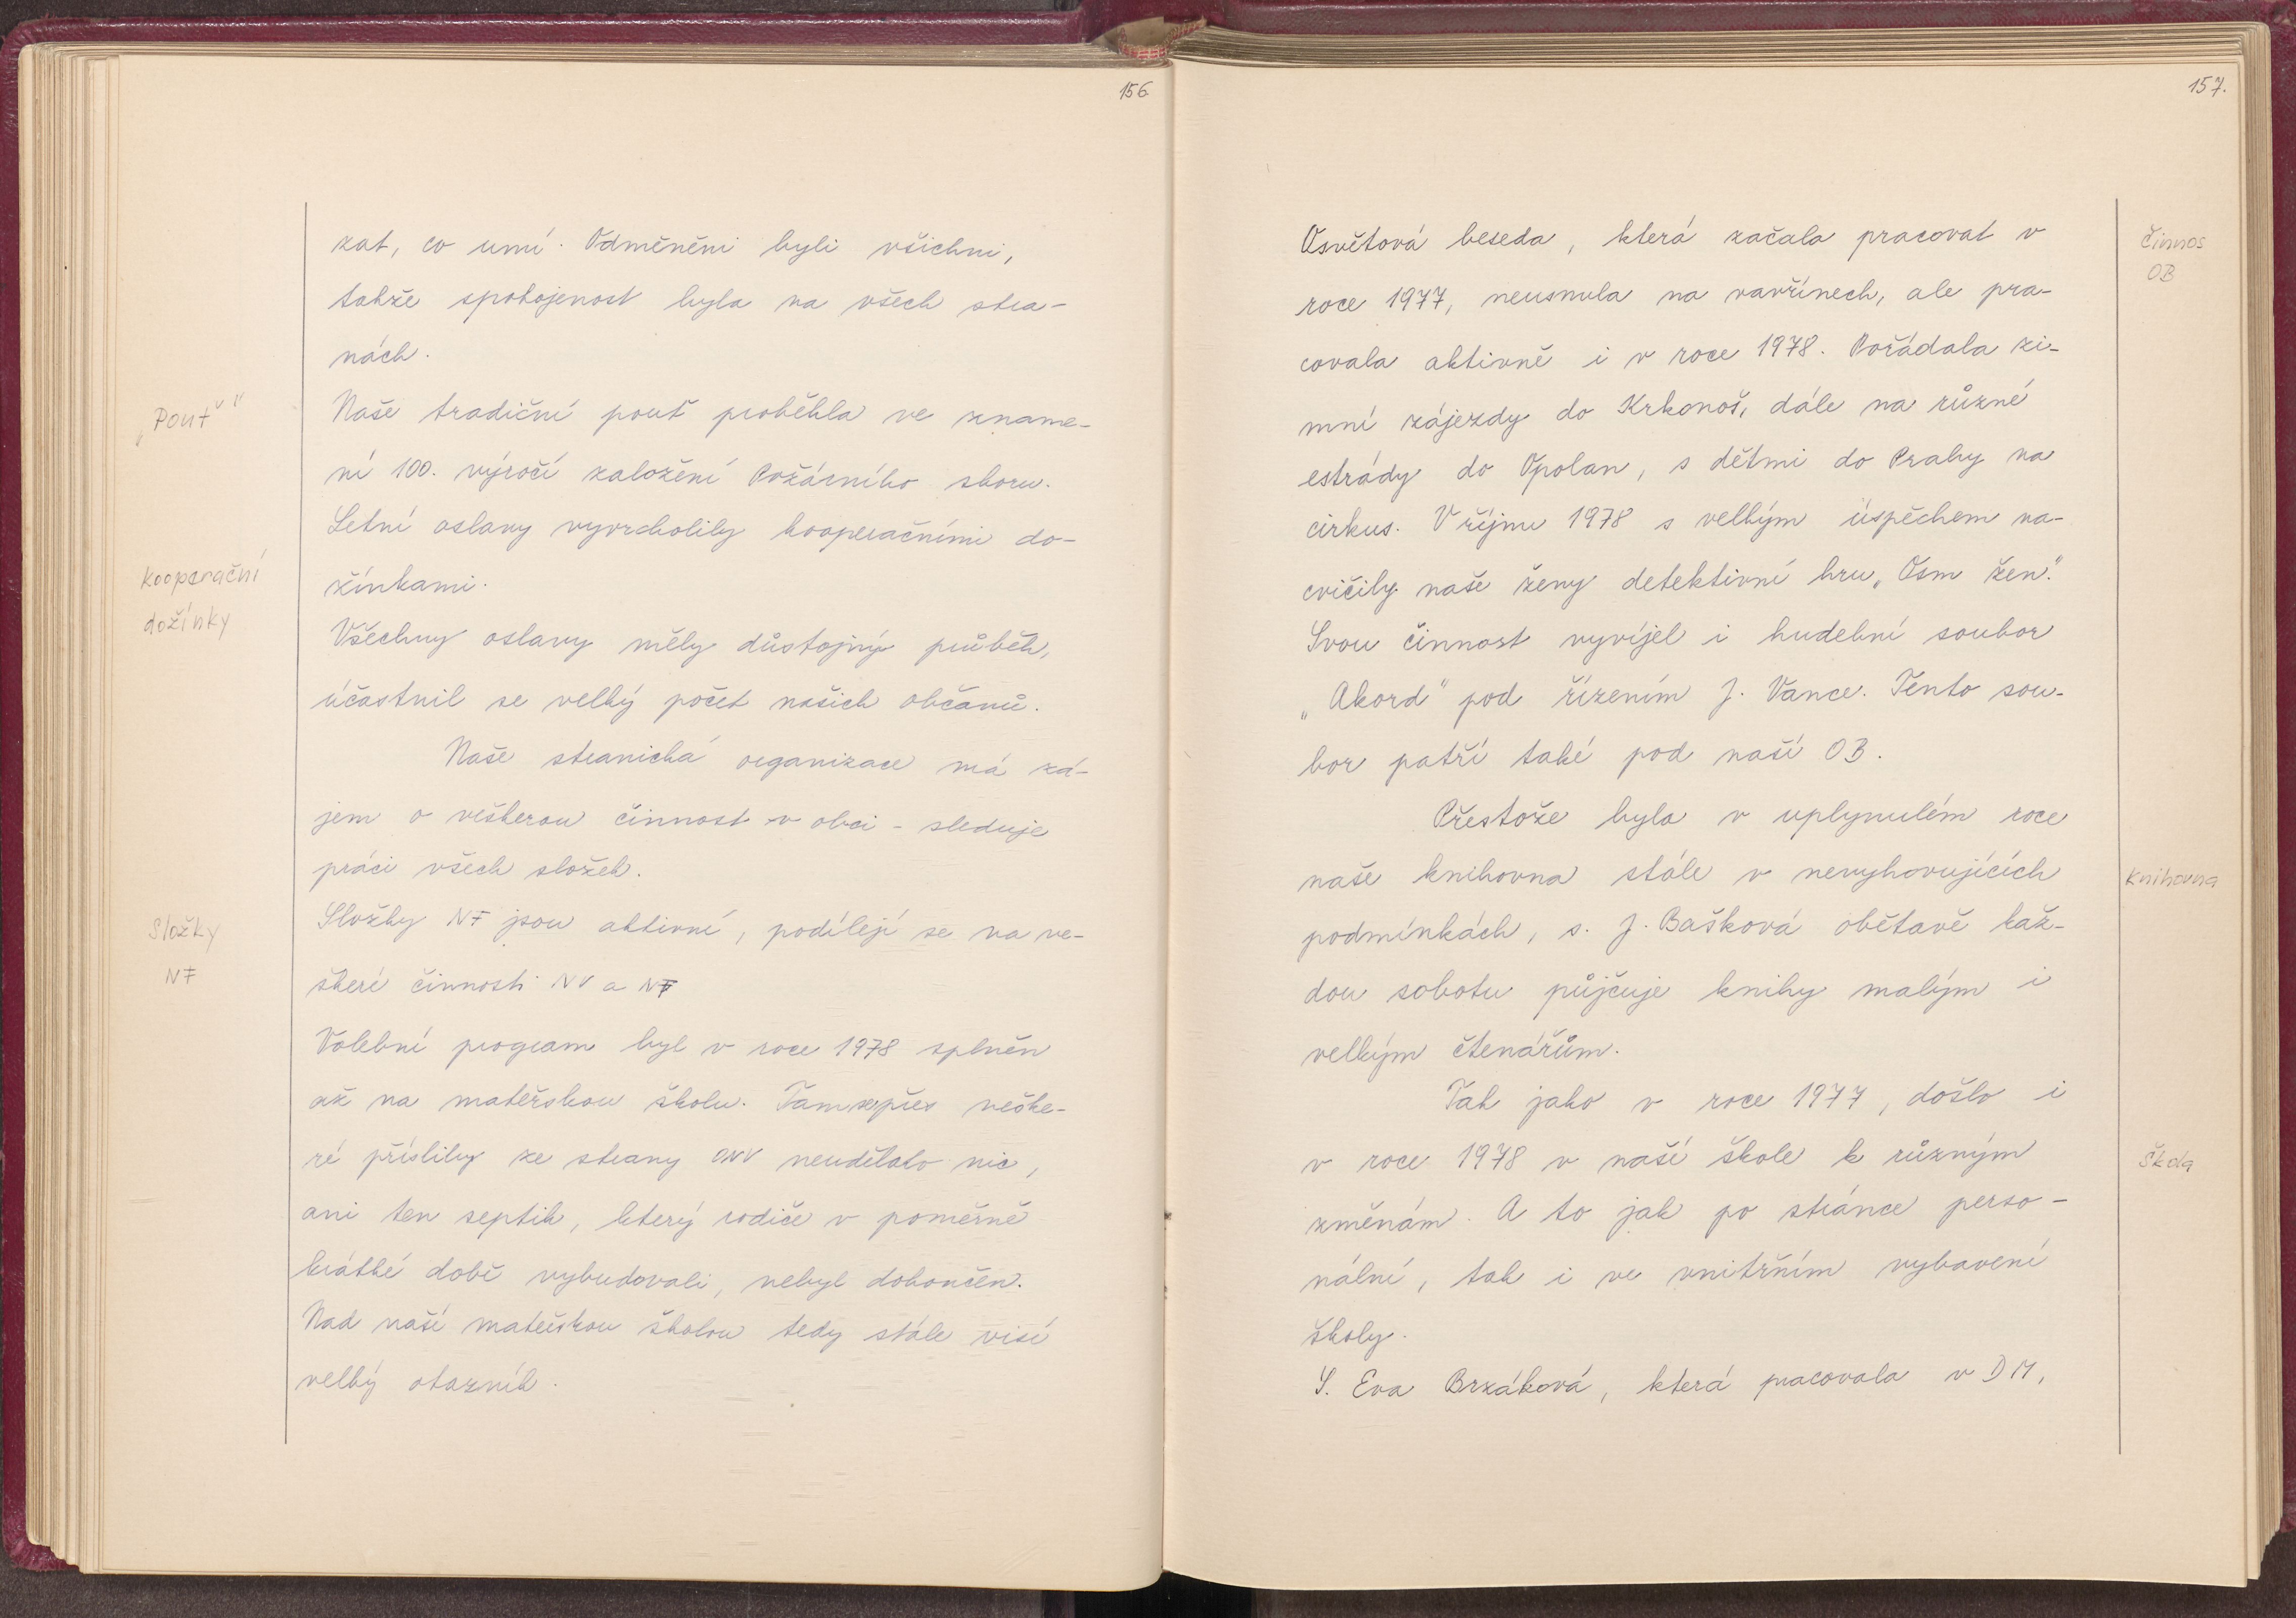 156
kat, co umí. Odměněni byli všichni,
takže spokojenost byla na všech stra-
nách.
„Pouť"
Naše tradiční pouť proběhla ve zname-
ní 100. výročí založení Požárního sboru.
Letní oslavy vyvrcholily kooperačními do-
kooperační
dožínky
žínkami.
Všechny oslavy měly důstojný průběh,
účastnil se velký počet našich občanů.
Naše stranická organizace má zá-
jem o veškerou činnost v obci - sleduje
práci všech složek.
Složky
NF
Složky NF jsou aktivní, podílejí se na ve-
škeré činnosti NV a NF
Volební program byl v roce 1978 splněn
až na mateřskou školu. Tam se přes veške-
ré přísliby ze strany ONV neudělalo nic,
ani ten septik, který rodiče v poměrně
krátké době vybudovali, nebyl dokončen.
Nad naší mateřskou školou tedy stále visí
velký otazník.
157.
Osvětová beseda, která začala pracovat v
činnos
OB
roce 1977, neusnula na vavřínech, ale pra-
covala aktivně i v roce 1978. Pořádala zi-
mní zájezdy do Krkonoš, dále na různé
estrády do Opolan, s dětmi do Prahy na
cirkus. V říjnu 1978 s velkým úspěchem na-
cvičily naše ženy detektivní hru „Osm žen."
Svou činnost vyvíjel i hudební soubor
„Akord" pod řízením J. Vance. Tento sou-
bor patří také pod naší OB.
Přestože byla v uplynulém roce
naše knihovna stále v nevyhovujících
knihovna
podmínkách, s. J. Bašková obětavě kaž-
dou sobotu půjčuje knihy malým i
velkým čtenářům.
Tak jako v roce 1977, došlo i
v roce 1978 v naší škole k různým
škola
změnám. A to jak po stránce perso-
nální, tak i ve vnitřním vybavení
školy.
S. Eva Brzáková, která pracovala v DM,